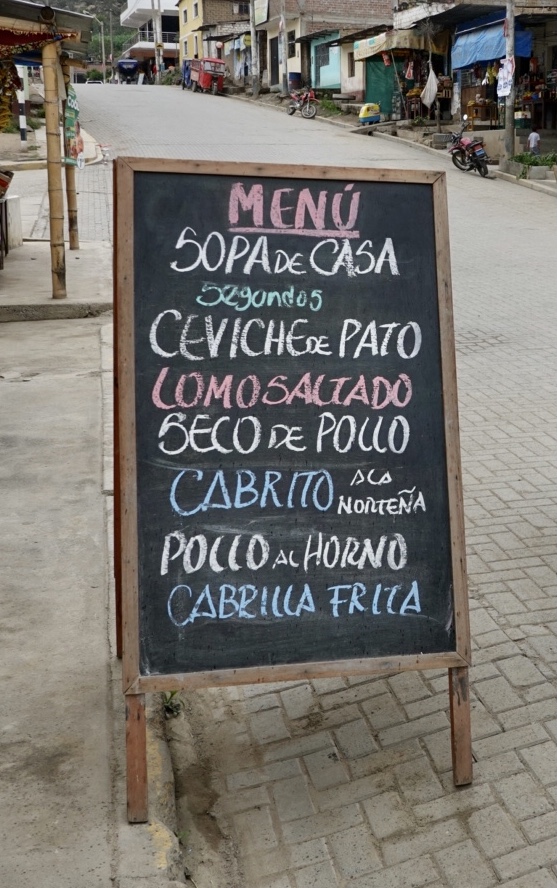 MENÚ
SOPA DE CASA
Segundos
CEVICHE DE PATO
LOMO SALTADO
SECO DE POLLO
CABRITO A LA NORTEÑA
POLLO AL HORNO
CABRILLA FRITA